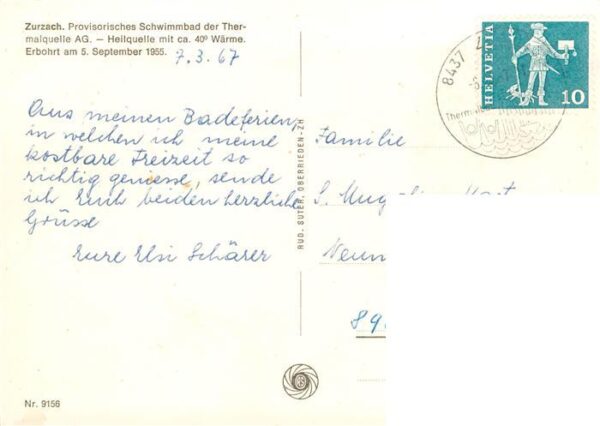 Zurzach. Provisorisches Schwimmbad der Ther-
malquelle AG. — Heilquelle mit ca. 40° Wärme.
Erbohrt am 5. September 1955.
7.3.67
Aus meinen Badeferien,
in welchen ich meine
kostbare Freizeit so
richtig geniesse, sende
ich Euch beiden herzliche
Grüsse
Eure Elsi Schärer
Nr. 9156
RUD. SUTER, OBERRIEDEN-ZH
HELVETIA
10
8437 Z
Familie